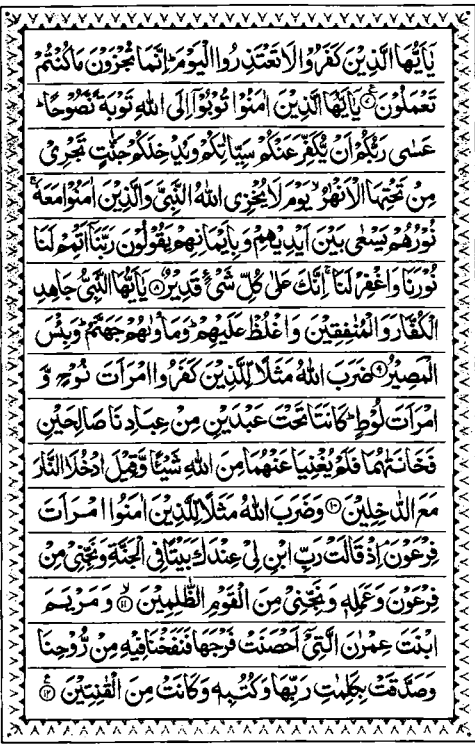 يٰۤاَيُّهَا الَّذِيْنَ كَفَرُوْا لَا تَعْتَذِرُوا الْيَوْمَ ؕ اِنَّمَا تُجْزَوْنَ مَا كُنْتُمْ
تَعْمَلُوْنَ ﴿۷﴾ يٰۤاَيُّهَا الَّذِيْنَ اٰمَنُوْا تُوْبُوْۤا اِلَى اللّٰهِ تَوْبَةً نَّصُوْحًا ؕ
عَسٰى رَبُّكُمْ اَنْ يُّكَفِّرَ عَنْكُمْ سَيِّاٰتِكُمْ وَيُدْخِلَكُمْ جَنّٰتٍ تَجْرِيْ
مِنْ تَحْتِهَا الْاَنْهٰرُ ۙ يَوْمَ لَا يُخْزِى اللّٰهُ النَّبِيَّ وَالَّذِيْنَ اٰمَنُوْا مَعَهٗ ۚ
نُوْرُهُمْ يَسْعٰى بَيْنَ اَيْدِيْهِمْ وَبِاَيْمَانِهِمْ يَقُوْلُوْنَ رَبَّنَاۤ اَتْمِمْ لَنَا
نُوْرَنَا وَاغْفِرْ لَنَا ۚ اِنَّكَ عَلٰى كُلِّ شَيْءٍ قَدِيْرٌ ﴿۸﴾ يٰۤاَيُّهَا النَّبِيُّ جَاهِدِ
الْكُفَّارَ وَالْمُنٰفِقِيْنَ وَاغْلُظْ عَلَيْهِمْ ؕ وَمَاْوٰىهُمْ جَهَنَّمُ ؕ وَبِئْسَ
الْمَصِيْرُ ﴿۹﴾ ضَرَبَ اللّٰهُ مَثَلًا لِّلَّذِيْنَ كَفَرُوا امْرَاَتَ نُوْحٍ وَّ
امْرَاَتَ لُوْطٍ ؕ كَانَتَا تَحْتَ عَبْدَيْنِ مِنْ عِبَادِنَا صَالِحَيْنِ
فَخَانَتٰهُمَا فَلَمْ يُغْنِيَا عَنْهُمَا مِنَ اللّٰهِ شَيْئًا وَّقِيْلَ ادْخُلَا النَّارَ
مَعَ الدّٰخِلِيْنَ ﴿۱۰﴾ وَضَرَبَ اللّٰهُ مَثَلًا لِّلَّذِيْنَ اٰمَنُوا امْرَاَتَ
فِرْعَوْنَ ۘ اِذْ قَالَتْ رَبِّ ابْنِ لِيْ عِنْدَكَ بَيْتًا فِى الْجَنَّةِ وَنَجِّنِيْ مِنْ
فِرْعَوْنَ وَعَمَلِهٖ وَنَجِّنِيْ مِنَ الْقَوْمِ الظّٰلِمِيْنَ ﴿۱۱﴾ ۙ وَمَرْيَمَ
ابْنَتَ عِمْرٰنَ الَّتِيْۤ اَحْصَنَتْ فَرْجَهَا فَنَفَخْنَا فِيْهِ مِنْ رُّوْحِنَا
وَصَدَّقَتْ بِكَلِمٰتِ رَبِّهَا وَكُتُبِهٖ وَكَانَتْ مِنَ الْقٰنِتِيْنَ ﴿۱۲﴾